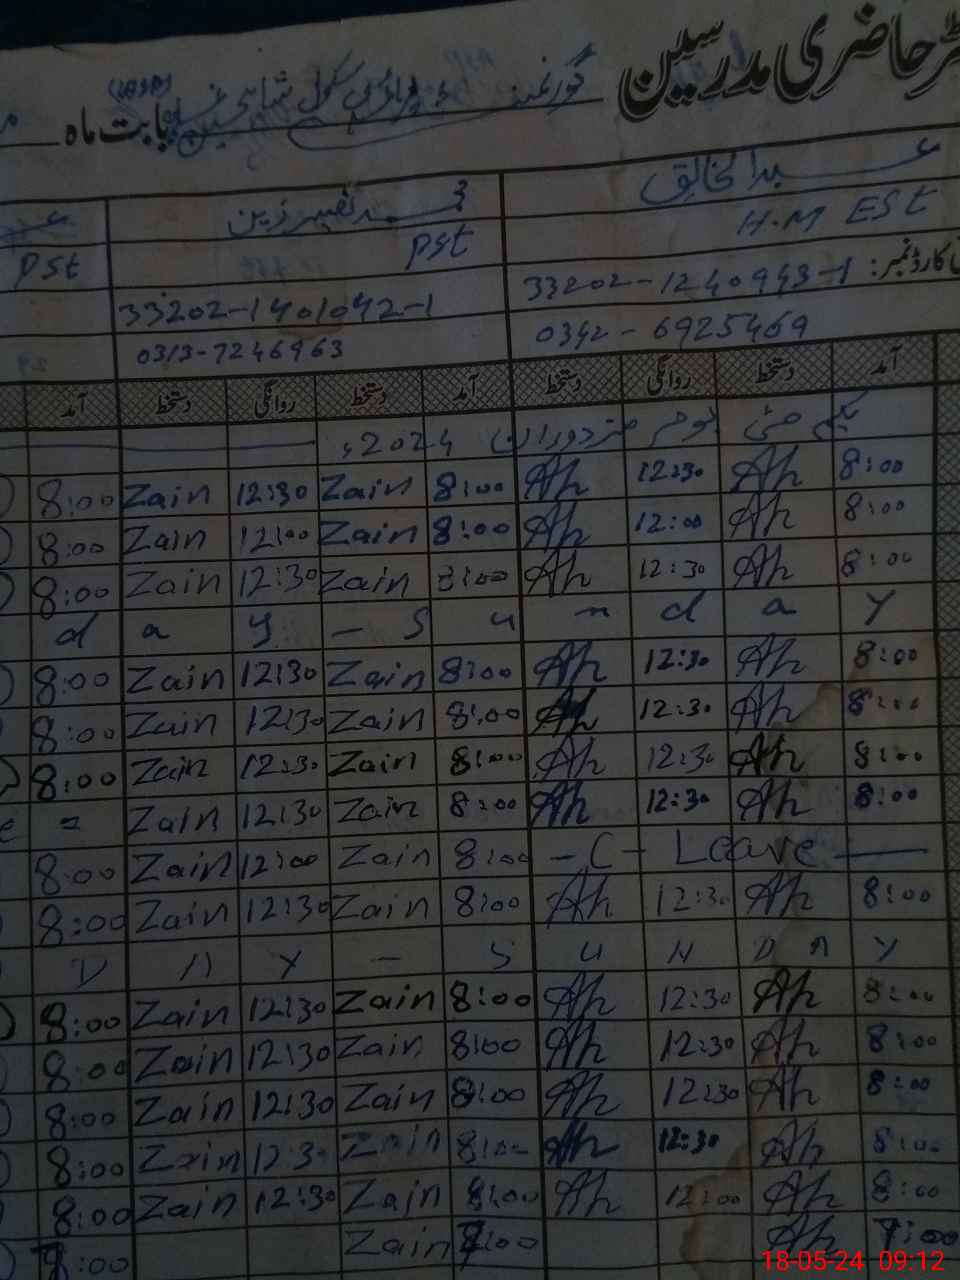 رجسٹر حاضری مدرسین گورنمنٹ پرائمری سکول بابت ماہ
عبدالخالق محمد نفیس زین
H.M EST PST PST
کارڈ نمبر: 33202-1240943-1 33202-1401042-1
0342-6925469 0313-7246963
آمد دستخط روانگی دستخط آمد دستخط روانگی دستخط آمد
یکم مئی یوم مزدوراں 2024ء
8:00 Zain 12:30 Zain 8:00 Ah 12:30 Ah 8:00
8:00 Zain 12:00 Zain 8:00 Ah 12:00 Ah 8:00
8:00 Zain 12:30 Zain 8:00 Ah 12:30 Ah 8:00
d a y - S u n d a y
8:00 Zain 12:30 Zain 8:00 Ah 12:30 Ah 8:00
8:00 Zain 12:30 Zain 8:00 Ah 12:30 Ah 8:00
8:00 Zain 12:30 Zain 8:00 Ah 12:30 Ah 8:00
Zain 12:30 Zain 8:00 Ah 12:30 Ah 8:00
8:00 Zain 12:00 Zain 8:00 - C - Leave
8:00 Zain 12:30 Zain 8:00 Ah 12:30 Ah 8:00
D A Y - S U N D A Y
8:00 Zain 12:30 Zain 8:00 Ah 12:30 Ah 8:00
8:00 Zain 12:30 Zain 8:00 Ah 12:30 Ah 8:00
8:00 Zain 12:30 Zain 8:00 Ah 12:30 Ah 8:00
8:00 Zain 12:30 Zain 8:00 Ah 12:30 Ah 8:00
8:00 Zain 12:30 Zain 8:00 Ah 12:00 Ah 8:00
7:00 Zain 7:00 Ah 7:00
18-05-24 09:12